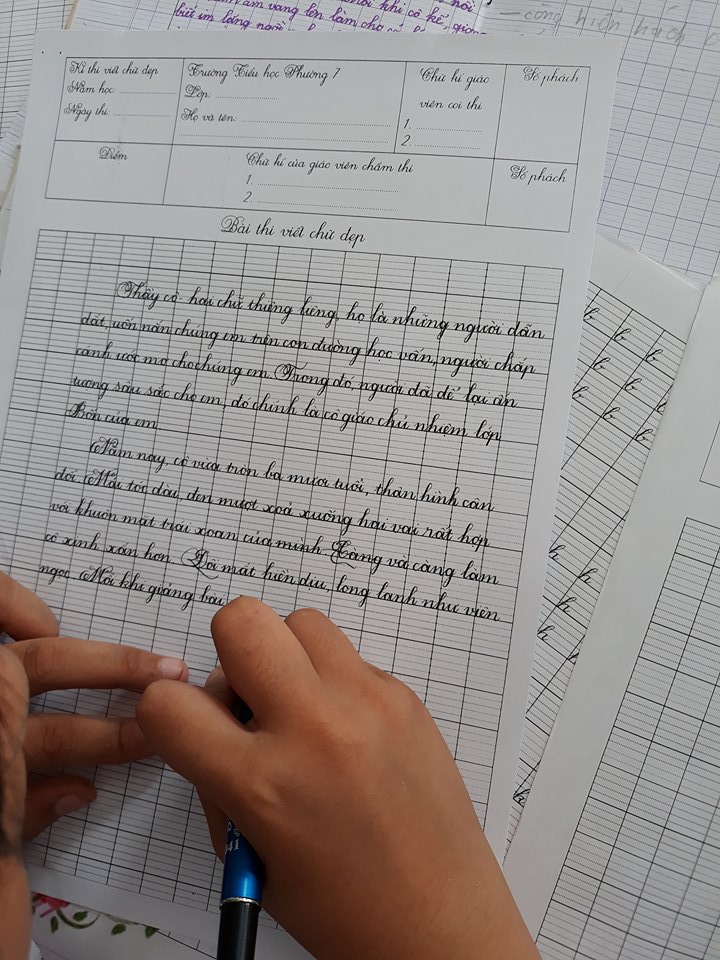 nói
âm vang lên làm cho cả
mỗi khi cô kể, giọng
biết im lặng ngồi
cống hiến
Kì thi viết chữ đẹp
Năm học:
Ngày thi:
Trường Tiểu học Phường 7
Lớp:
Họ và tên:
Chữ kí giáo
viên coi thi
1.
2.
Số phách
Điểm
Chữ kí của giáo viên chấm thi
1.
2.
Số phách
Bài thi viết chữ đẹp
Thầy cô - hai chữ thiêng liêng, họ là những người dẫn
dắt, uốn nắn chúng em trên con đường học vấn, người chắp
cánh ước mơ cho chúng em. Trong đó, người đã để lại ấn
tượng sâu sắc cho em, đó chính là cô giáo chủ nhiệm lớp
Bốn của em.
Năm nay, cô vừa tròn ba mươi tuổi, thân hình cân
đối. Mái tóc dài, đen mượt xoã xuống hai vai rất hợp
với khuôn mặt trái xoan của mình. Càng và càng làm
cô xinh xắn hơn. Đôi mắt hiền dịu, long lanh như viên
ngọc. Mỗi khi giảng bài
b b b
b b b
b b b
h h
h h
h
h
941